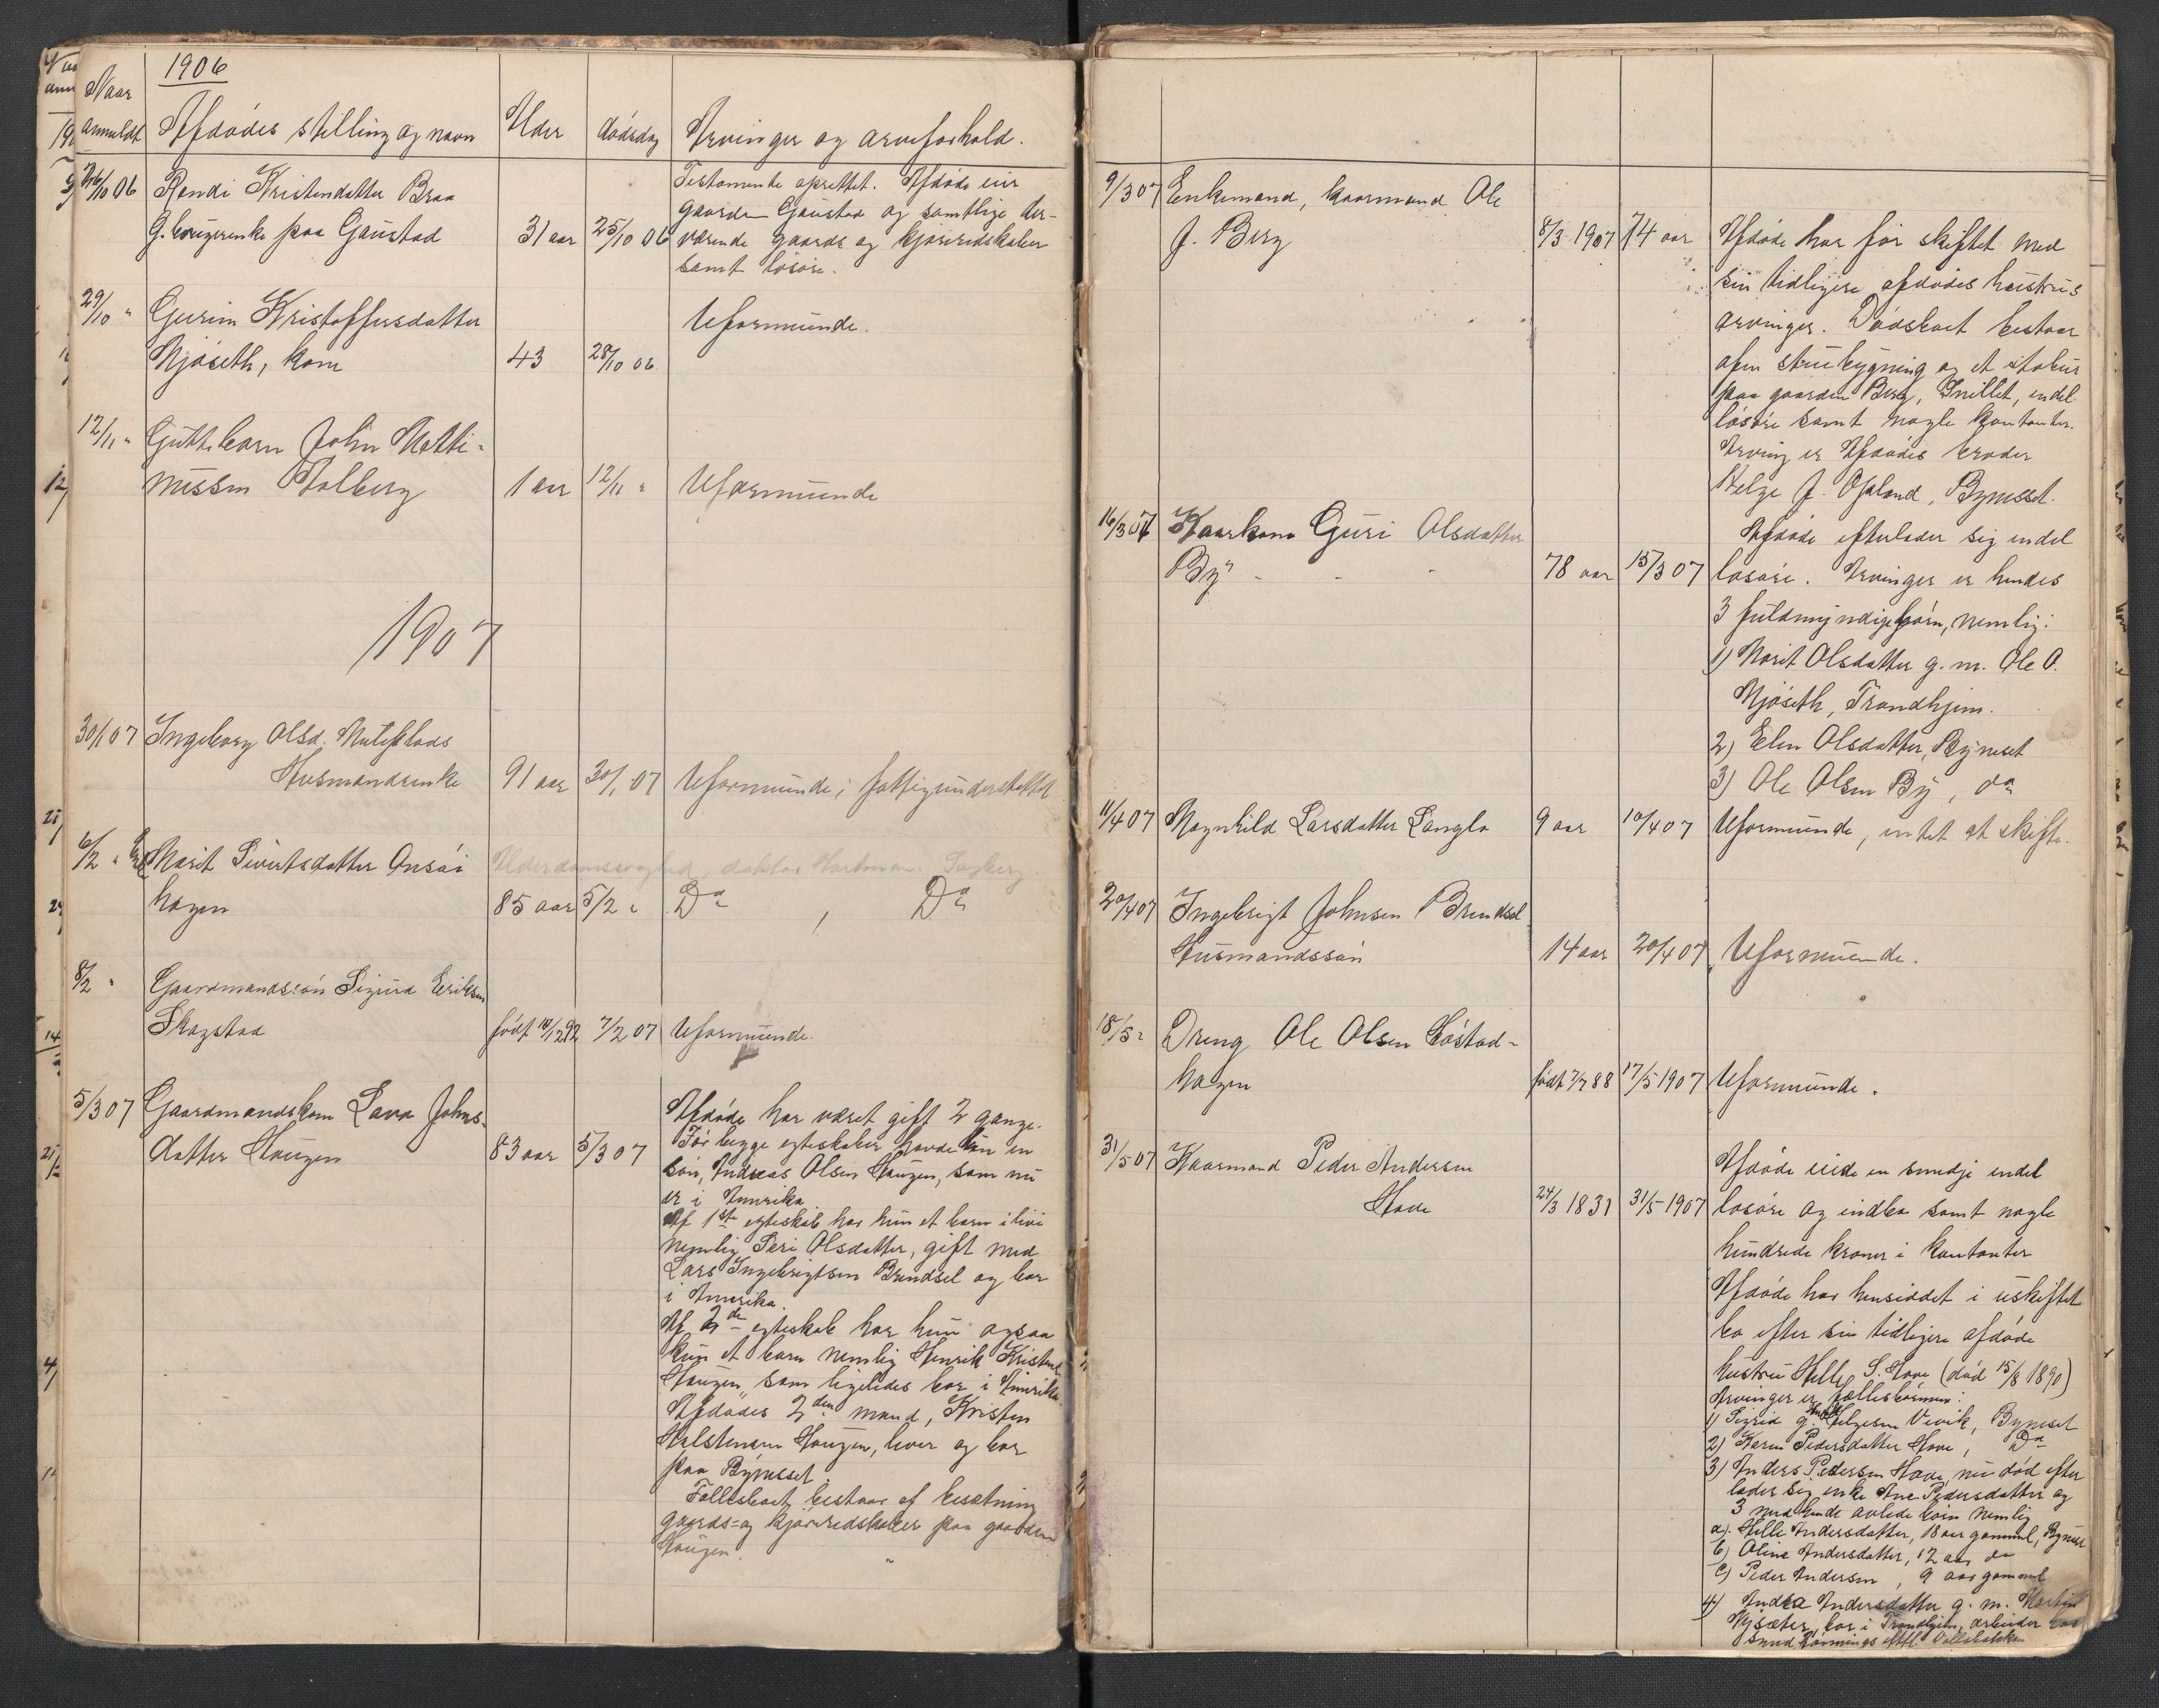 1906
Naar
anmeldt Afdødes stilling og navn Alder dødsdag Arvinger og arveforhold.
26/10 06 Randi Kristendatter Braa
g.brugerenke paa Gaustad 31 aar 25/10 06
Testamente oprettet. Afdøde eier
gaarden Gaustad og samtlige der-
værende gaards og kjøreredskaber
samt løsøre.
29/10 " Gurine Kristoffersdatter
Mjøseth, kone 43 28/10 06
Uformuende.
12/11 " Guttebarn John Marti-
nussen Solberg 1 aar 12/11 " Uformuende
1907
30/1 07 Ingeborg Olsd.
Husmandsenke 91 aar 30/1 07 Uformuende; fattigunderstøttet
6/2 " Marit Sivertsdatter Onsøi
Alderdomssvaghed, doktor Hartman.
hagen 85 aar 5/2 " Do , Do
8/2 " Gaardmandssøn Sigurd Eriksen
Skogstad født 10/12 92 7/2 07 Uformuende.
5/3 07 Gaardmandskone Lava Johns-
datter Haugen 83 aar 5/3 07
Afdøde har været gift 2 gange.
Før begge egteskaber havde hun en
søn, Andreas Olsen Haugen, som nu
er i Amerika.
Af 1ste egteskab har hun et barn i live
nemlig Seri Olsdatter, gift med
Lars Ingebrigtsen Brendsel og bor
i Amerika.
Af 2de egteskab har hun ogsaa
kun et barn nemlig Henrik Kristens.
Haugen, som ligeledes bor i Amerika.
Afdødes 2den mand, Kristen
Halstensen Haugen, lever og bor
paa Bynesset.
Fællesboet bestaar af besætning
gaards- og kjøreredskaber paa gaarden
Haugen.
9/3 07 Enkemand, kaarmand Ole
J. Berg 8/3 1907 74 aar
Afdøde har før skiftet med
sin tidligere afdødes hustrus
arvinger. Dødsboet bestaar
af en stuebygning og et stabur
paa gaarden Berg, Spillet, endel
løsøre samt nogle kontanter.
Arving er Afdødes broder
Helge J. Opland, Bynesset.
16/3 07 Kaarkone Guri Olsdatter
By 78 aar 15/3 07
Afdøde efterlader sig endel
løsøre. Arvinger er hendes
3 fuldmyndige børn, nemlig:
1) Marit Olsdatter g. m. Ole O.
Mjøseth, Trondhjem.
2) Elen Olsdatter, Byneset
3) Ole Olsen By, do
11/4 07 Magnhild Larsdatter Langlo 9 aar 10/4 07 Uformuende, intet at skifte.
20/4 07 Ingebrigt Johnsen Brendsel
Husmandssøn 14 aar 20/4 07 Uformuende.
18/5 " Dreng Ole Olsen Høstad-
hagen født 7/7 88 17/5 1907 Uformuende.
31/5 07 Kaarmand Peder Andersen
Hove 24/3 1831 31/5 1907
Afdøde eiede en smedje endel
løsøre og indbo samt nogle
hundrede kroner i kontanter
Afdøde har hensiddet i uskiftet
bo efter sin tidligere afdøde
hustru Helle S. Hove (død 15/8 1890)
Arvinger er fællesbørnene:
1) Sigrid g. Helgesen Vivik, Byneset
2) Karen Pedersdatter Hove, Do
3) Anders Pedersen Hove, nu død efter
lader sig enke Ane Pedersdatter og
3 med hende avlede børn nemlig
a) Helle Andersdatter, 18 aar gammel, Byneset
b) Oline Andersdatter, 12 aar do
c) Peder Andersen, 9 aar gammel
4) Andrea Andersdatter g. m. Martin
bor i Trondhjem, arbeider hos
smed